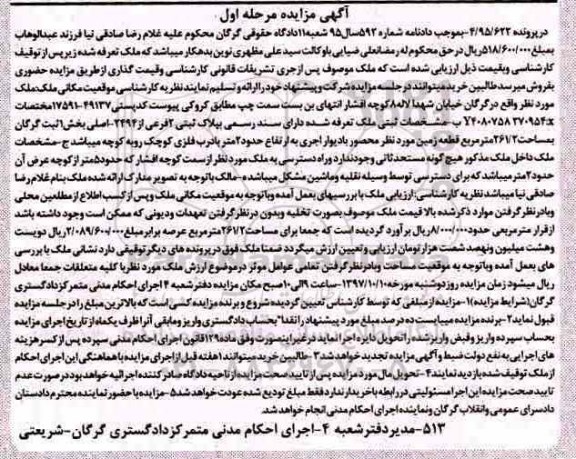 آگهی مزایده مرحله اول
در پرونده ۴/۹۵/۶۲۲-بموجب دادنامه شماره ۵۹۲سال۹۵ شعبه۱۱دادگاه حقوقی گرگان محکوم علیه غلام رضا صادقی نیا فرزند عبدالوهاب
بمبلغ۵۱۸/۶۰۰/۰۰۰ریال در حق محکوم له رمضانعلی ضیایی باوکالت سید علی مظهری نوین بدهکار میباشد که ملک تعرفه شده زیر پس از توقیف
کارشناسی وبقیمت ذیل ارزیابی شده است که ملک موصوف پس ازجری تشریفات قانونی کارشناسی وقیمت گذاری ازطریق مزایده حضوری
بفروش میرسدطالبین خرید میتوانند در جلسه مزایده شرکت و پیشنهاد خود را ارائه و تسلیم نمایند نظریه کارشناسی موقعیت مکانی ملک:ملک
مورد نظر واقع در گرگان خیابان شهدا لاله۸کوچه افشار انتهای بن بست سمت چپ مطابق کروکی پیوست کدپستی۴۹۱۳۷-۱۷۵۹۱مختصات
x:۲۷۰۹۵۴ Y۴۰۸۰۷۵۸ ب-مشخصات ثبتی ملک تعرفه شده دارای سند رسمی بپلاک ثبتی ۲فرعی از۳۴۹۴-اصلی بخش۱ثبت گرگان
بمساحت۲۶۱/۲مترمربع قطعه زمین مورد نظر محصور بادیوار اجری به ارتفاع حدود۲متر بادرب فلزی کوچک روبه کوچه میباشد ج-مشخصات
ملک داخل ملک مذکور هیچ گونه مستحدثاتی وجود ندارد و راه دسترسی به ملک مورد نظر از سمت کوچه افشار که حدود۵متر از کوچه عرض آن
حدود۲متر میباشد که برای دسترسی توسط وسیله نقلیه وماشین مشکل میباشد ه-مالک باتوجه به تصویر مدارک ارائه شده ملک بنام غلام رضا
صادقی نیا میباشد نظریه کارشناسی:ارزیابی ملک با بررسیهای بعمل آمده وباتوجه به موقعیت مکانی ملک وپس از کسب اطلاع از مطلعین محلی
وبادر نظر گرفتن موارد ذکر شده بالا قیمت ملک موصوف بصورت تخلیه وبدون در نظر گرفتن تعهدات و دیونی که ممکن است وجود داشته باشد
از قرار متر مربعی حدود۸/۰۰۰/۰۰۰ریال برآورد گردیده است که جمعا برای مساحت۲۶۱/۲مترمربع عرصه برابر مبلغ۲/۰۸۹/۶۰۰/۰۰۰ریال دویست
وهشت میلیون ونهصد شصت هزار تومان ارزیابی و تعیین ارزش میگردد ضمنا ملک فوق در پرونده های دیگر توقیفی دارد نشانی ملک با بررسی
های بعمل آمده وباتوجه به موقعیت مساحت وبادر نظر گرفتن تمامی عوامل موثر در موضوع ارزش ملک مورد نظر با کلیه متعلقات جمعا معادل
ریال میشود زمان مزایده روز دوشنبه مورخه۱۳۹۷/۱۰/۱۰-ساعت ۹الی۱۰صبح مکان مزایده دفتر شعبه ۴ اجرای احکام مدنی متمرکز دادگستری
گرگان(شرایط مزایده)۱-مزایده از مبلغی که توسط کارشناس تعیین گردیده شروع و برنده مزایده کسی است که بالاترین مبلغ را در جلسه مزایده
قبول نماید۲-برنده مزایده میبایست ده درصد مبلغ مورد پیشنهاد را نقدا"بحساب دادگستری واریز ومابقی آنرا ظرف یکماه از تاریخ اجرای مزایده
بحساب سپرده واریز وفیش واریز شده را تحویل دایره اجرا نماید در غیر اینصورت وفق ماده۱۲۹قانون اجرای احکام مدنی سپرده پس از کسر هزینه
های اجرایی به نفع دولت ضبط و آگهی مزایده تجدید خواهد شد۳-طالبین خرید میتوانند ۱هفته قبل از اجرای مزایده با هماهنگی این اجرای احکام
از ملک توقیف شده بازدید نمایند۴-تحویل مال مورد مزایده پس از تایید صحت مزایده از ناحیه دادگاه صادر کننده اجرائیه خواهد بود در صورت عدم
تایید صحت مزایده این اجرا مسئولیتی در رابطه با خریدار ندارد فقط مبلغ تودیع شده عودت خواهد شد۵-مزایده با حضور نماینده محترم دادستان
دادسرای عمومی وانقلاب گرگان ونماینده اجرای احکام مدنی انجام خواهد شد.
۵۱۳-مدیر دفتر شعبه ۴-اجرای احکام مدنی متمرکز دادگستری گرگان-شریعتی